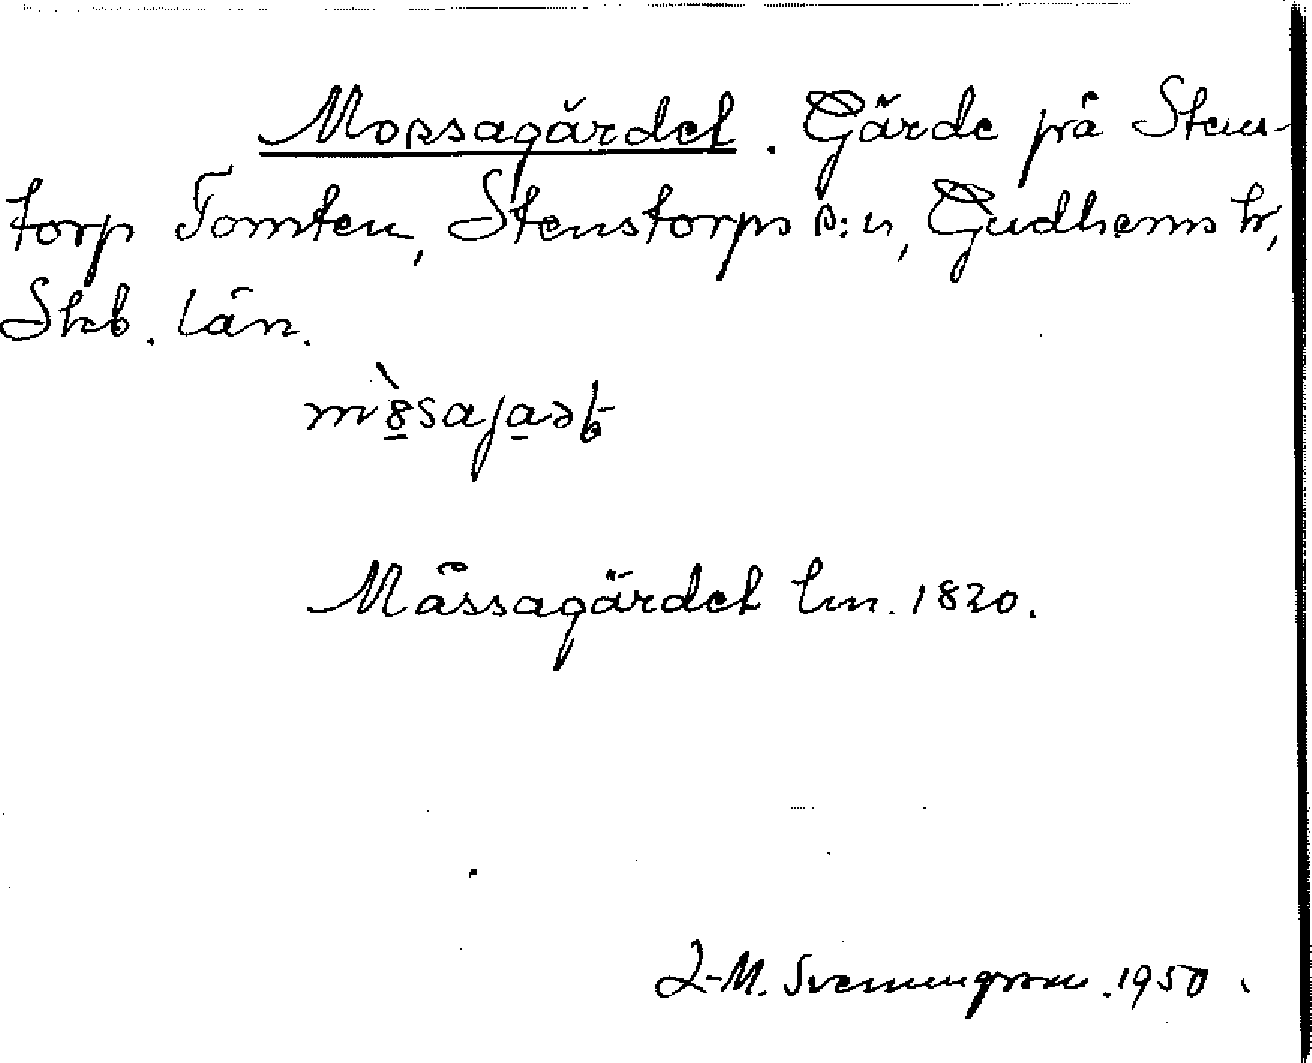 Mossagärdet. Gärde på Sten-
torp Tomten, Stenstorps s:n, Gudhems hr,
Skb. län.
Måssagärdet lm. 1820.
I-M. 1950.